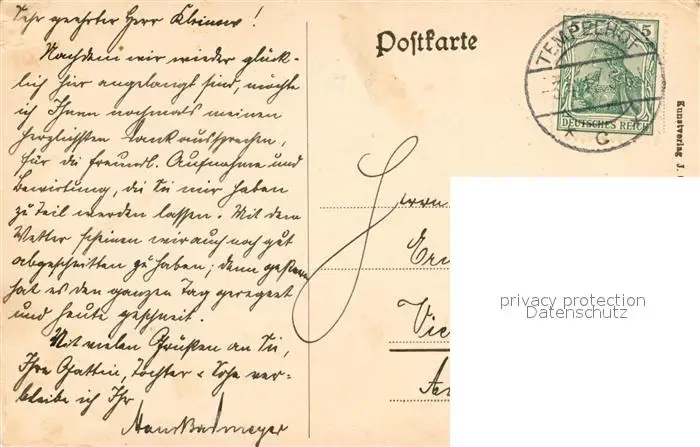 Sehr geehrter Herr
Nachdem wir wieder glück-
lich hier angelangt sind, möchte
ich Ihnen nochmals meinen
herzlichsten Dank aussprechen,
für die freundl. Aufnahme und
Bewirtung, die Sie mir haben
zu Teil werden lassen. Mit dem
Wetter scheinen wir auch noch gut
abgeschnitten zu haben; denn gestern
hat es den ganzen Tag geregnet
und heute geschneit.
Mit vielen Grüßen an Sie,
Ihre Gattin, Töchter & Sohn ver-
bleibe ich Ihr
Hans
Postkarte
TEMPELHOF
5 5
DEUTSCHES REICH
* C *
Kunstverlag J.
Herrn
privacy protection
Datenschutz